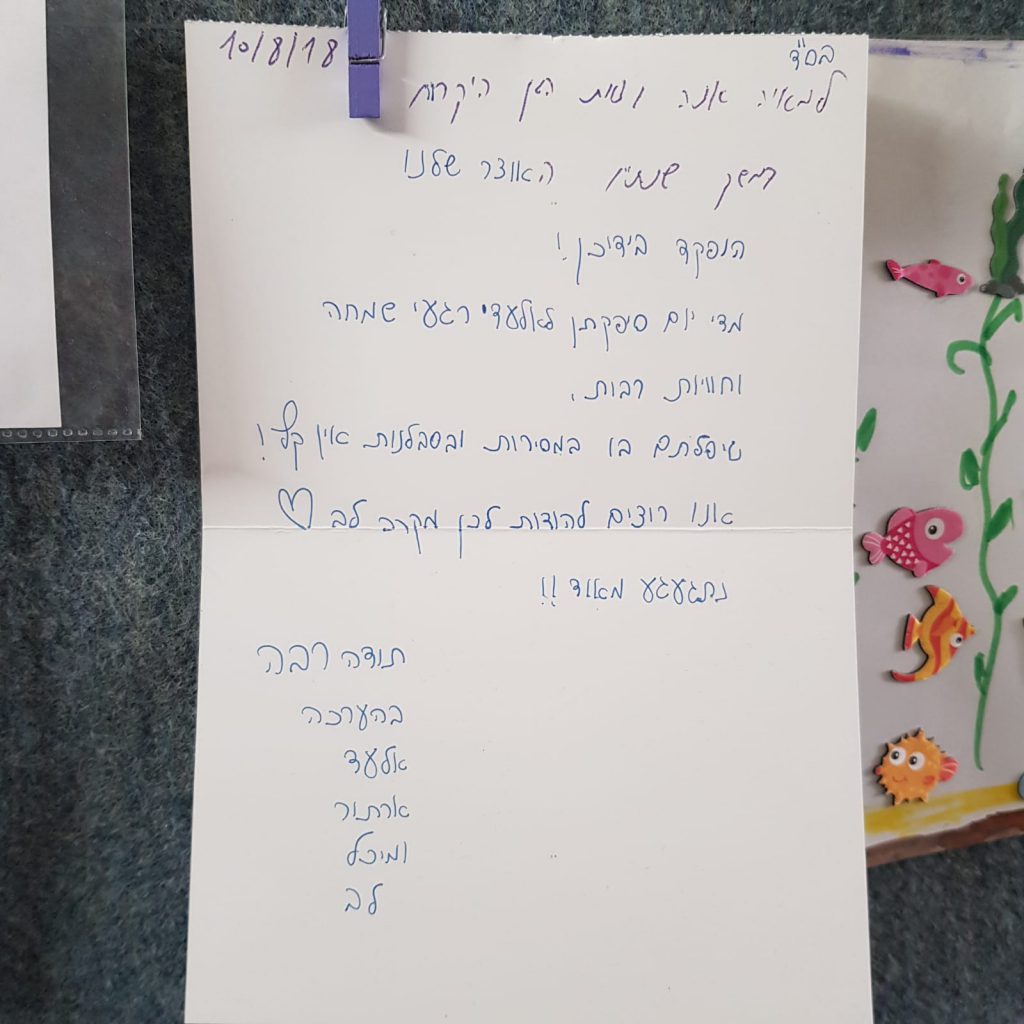 בס"ד
10/8/18
למאיה אנה וצוות הגן היקרות
במשך שנתיים האוצר שלנו
הופקד בידיכן!
מדי יום סיפקתן לאלעדי רגעי שמחה
וחוויות רבות,
טיפלתם בו במסירות ובסבלנות אין קץ!
אנו רוצים להודות לכן מקרב לב
נתגעגע מאוד!!
תודה רבה
בהערכה
אלעד
ארתור
ומיכל
לב